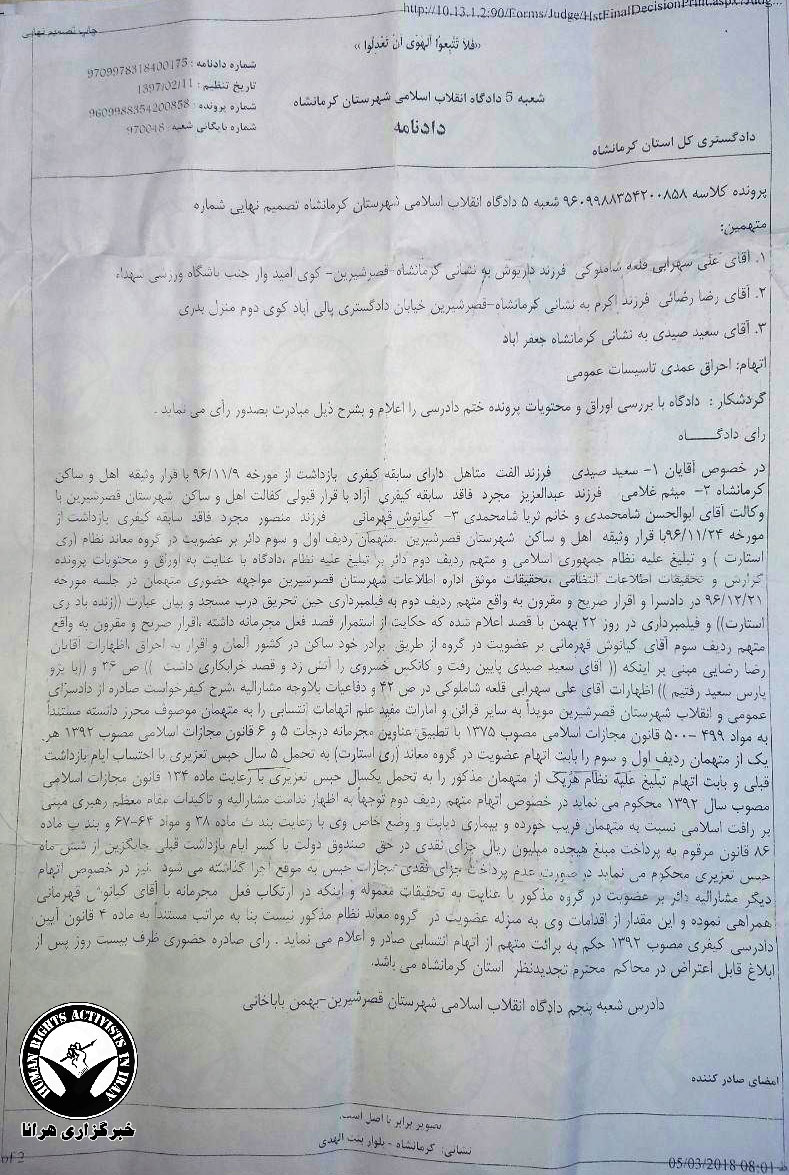 http://10.13.1.2:90/Forms/Judge/HstFinalDecisionPrint.aspx?Judg...
چاپ تصمیم نهایی
«فلا تتبعوا الهوی ان تعدلوا»
شماره دادنامه : 9709978318400175
تاریخ تنظیم : 1397/02/11
شماره پرونده : 9609988354200858
شماره بایگانی شعبه : 970048
شعبه 5 دادگاه انقلاب اسلامی شهرستان کرمانشاه
دادنامه
دادگستری کل استان کرمانشاه
پرونده کلاسه ۹۶۰۹۹۸۸۳۵۴۲۰۰۸۵۸ شعبه ۵ دادگاه انقلاب اسلامی شهرستان کرمانشاه تصمیم نهایی شماره
متهمین:
۱. آقای علی سهرابی قلعه شاملوکی فرزند داریوش به نشانی کرمانشاه-قصرشیرین- کوی امید وار جنب باشگاه ورزشی شهداء
۲. آقای رضا رضائی فرزند اکرم به نشانی کرمانشاه-قصرشیرین خیابان دادگستری پالی آباد کوی دوم منزل بدری
۳. آقای سعید صیدی به نشانی کرمانشاه جعفر اباد
اتهام: احراق عمدی تاسیسات عمومی
گردشکار : دادگاه با بررسی اوراق و محتویات پرونده ختم دادرسی را اعلام و بشرح ذیل مبادرت بصدور رأی می نماید .
رای دادگـــــاه
در خصوص آقایان ۱- سعید صیدی فرزند الفت متاهل دارای سابقه کیفری بازداشت از مورخه ۹۶/۱۱/۹ با قرار وثیقه اهل و ساکن
کرمانشاه ۲- میثم غلامی فرزند عبدالعزیز مجرد فاقد سابقه کیفری آزاد با قرار قبولی کفالت اهل و ساکن شهرستان قصرشیرین با
وکالت آقای ابوالحسن شامحمدی و خانم ثریا شامحمدی ۳- کیانوش قهرمانی فرزند منصور مجرد فاقد سابقه کیفری بازداشت از
مورخه ۹۶/۱۱/۲۴با قرار وثیقه اهل و ساکن شهرستان قصرشیرین .متهمان ردیف اول و سوم دائر بر عضویت در گروه معاند نظام (ری
استارت ) و تبلیغ علیه نظام جمهوری اسلامی و متهم ردیف دوم دائر بر تبلیغ علیه نظام ،دادگاه با عنایت به اوراق و محتویات پرونده
گزارش و تحقیقات اطلاعات انتظامی ،تحقیقات موثق اداره اطلاعات شهرستان قصرشیرین مواجهه حضوری متهمان در جلسه مورخه
۹۶/۱۲/۲۱ در دادسرا و اقرار صریح و مقرون به واقع متهم ردیف دوم به فیلمبرداری حین تحریق درب مسجد و بیان عبارت ((زنده باد ری
استارت)) و فیلمبرداری در روز ۲۲ بهمن با قصد اعلام شده که حکایت از استمرار قصد فعل مجرمانه داشته ،اقرار صریح و مقرون به واقع
متهم ردیف سوم آقای کیانوش قهرمانی بر عضویت در گروه از طریق برادر خود ساکن در کشور آلمان و اقرار به احراق ،اظهارات آقایان
رضا رضایی مبنی بر اینکه (( آقای سعید صیدی پایین رفت و کانکس خسروی را آتش زد و قصد خرابکاری داشت )) ص ۲۶ و ((با پژو
پارس سعید رفتیم )) اظهارات آقای علی سهرابی قلعه شاملوکی در ص ۴۲ و دفاعیات بلاوجه مشارالیه ،شرح کیفرخواست صادره از دادسرای
عمومی و انقلاب شهرستان قصرشیرین مویداً به سایر قرائن و امارات مفید علم اتهامات انتسابی را به متهمان موصوف محرز دانسته مستنداً
به مواد ۴۹۹ -۵۰۰ قانون مجازات اسلامی مصوب ۱۳۷۵ با تطبیق عناوین مجرمانه درجات ۵ و ۶ قانون مجازات اسلامی مصوب ۱۳۹۲ هر
یک از متهمان ردیف اول و سوم را بابت اتهام عضویت در گروه معاند (ری استارت) به تحمل ۵ سال حبس تعزیری با احتساب ایام بازداشت
قبلی و بابت اتهام تبلیغ علیه نظام هریک از متهمان مذکور را به تحمل یکسال حبس تعزیری با رعایت ماده ۱۳۴ قانون مجازات اسلامی
مصوب سال ۱۳۹۲ محکوم می نماید در خصوص اتهام متهم ردیف دوم توجهاً به اظهار ندامت مشارالیه و تاکیدات مقام معظم رهبری مبنی
بر رافت اسلامی نسبت به متهمان فریب خورده و بیماری دیابت و وضع خاص وی با رعایت بند ث ماده ۳۸ و مواد ۶۴-۶۷ و بند پ ماده
۸۶ قانون مرقوم به پرداخت مبلغ هیجده میلیون ریال جزای نقدی در حق صندوق دولت با کسر ایام بازداشت قبلی جایگزین از شش ماه
حبس تعزیری محکوم می نماید در صورت عدم پرداخت جزای نقدی مجازات حبس به موقع اجرا گذاشته می شود .نیز در خصوص اتهام
دیگر مشارالیه دائر بر عضویت در گروه مذکور با عنایت به تحقیقات معموله و اینکه در ارتکاب فعل مجرمانه با آقای کیانوش قهرمانی
همراهی نموده و این مقدار از اقدامات وی به منزله عضویت در گروه معاند نظام مذکور نیست بنا به مراتب مستنداً به ماده ۴ قانون آیین
دادرسی کیفری مصوب ۱۳۹۲ حکم به برائت متهم از اتهام انتسابی صادر و اعلام می نماید . رای صادره حضوری ظرف بیست روز پس از
ابلاغ قابل اعتراض در محاکم محترم تجدیدنظر استان کرمانشاه می باشد.
دادرس شعبه پنجم دادگاه انقلاب اسلامی شهرستان قصرشیرین-بهمن باباخانی
امضای صادر کننده
تصویر برابر با اصل است.
نشانی: کرمانشاه - بلوار بنت الهدی
of 2
05/03/2018 08:01
HUMAN RIGHTS ACTIVISTS IN IRAN
خبرگزاری هرانا